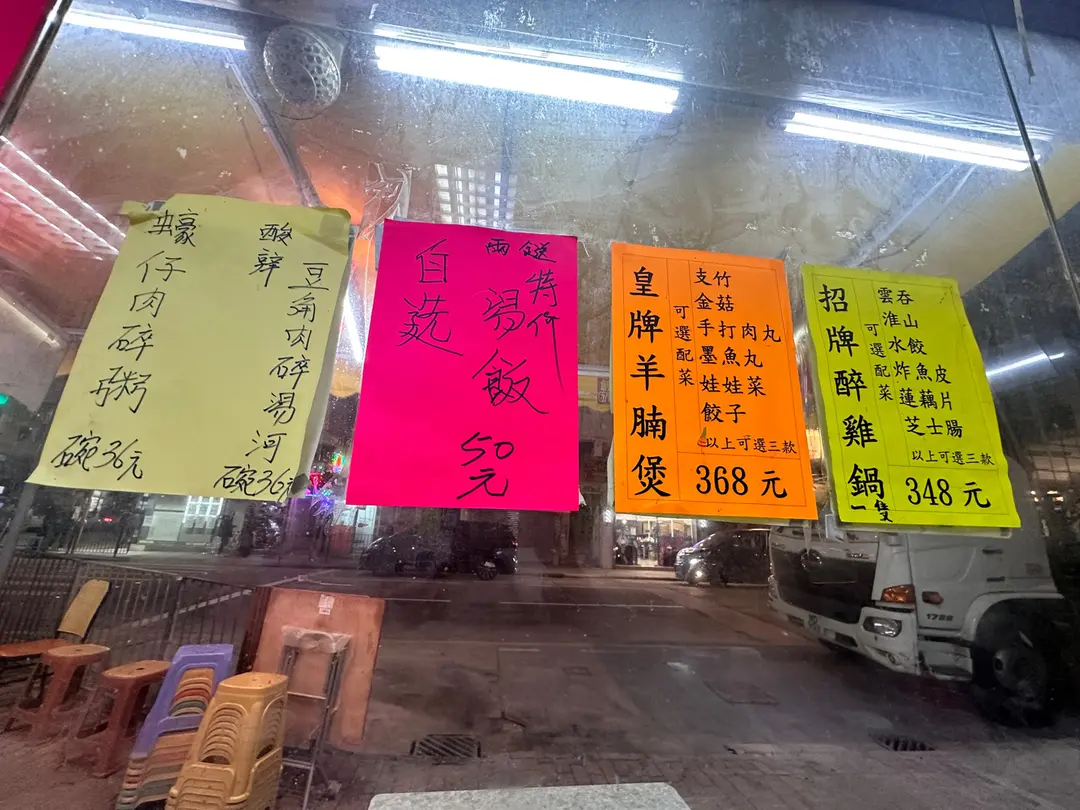 蠔仔肉碎粥
碗36元
酸辣
豆角肉碎湯河
碗36元
自選
兩餸
特价
湯飯
50元
皇牌羊腩煲
可選配菜
支竹
金菇
手打肉丸
墨魚丸
娃娃菜
餃子
以上可選三款
368元
招牌醉雞鍋一隻
可選配菜
雲吞
淮山
水餃
炸魚皮
蓮藕片
芝士腸
以上可選三款
348元